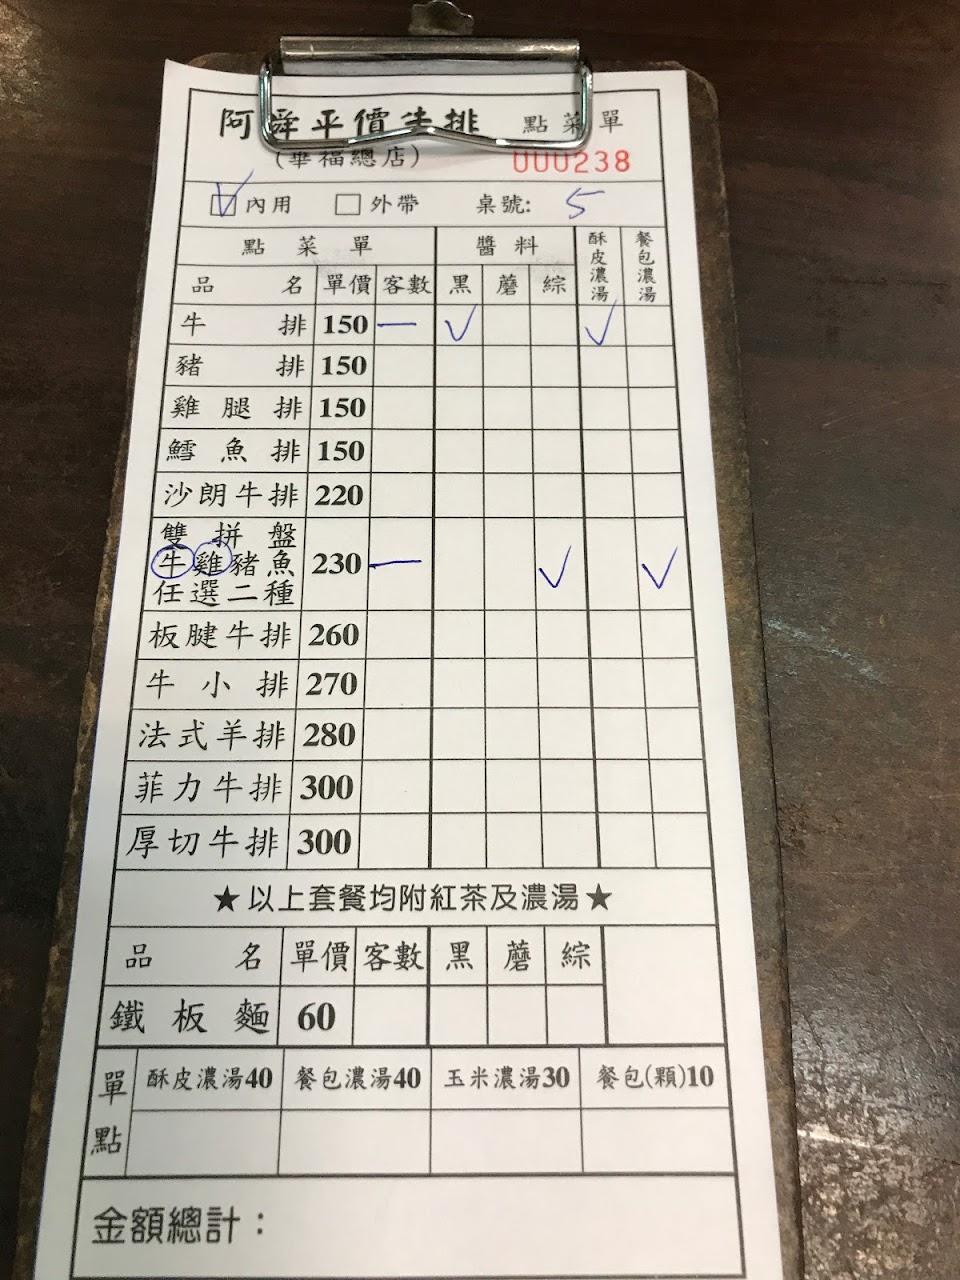 阿舜平價牛排 點菜單
(華福總店) 000238
☑內用 □外帶 桌號: 5
點菜單 醬料 酥皮濃湯 餐包濃湯
品名 單價 客數 黑 蘑 綜
牛排 150 一 ✓ ✓
豬排 150
雞腿排 150
鱈魚排 150
沙朗牛排 220
雙拼盤
牛雞豬魚 230 一 ✓ ✓
任選二種
板腱牛排 260
牛小排 270
法式羊排 280
菲力牛排 300
厚切牛排 300
★以上套餐均附紅茶及濃湯★
品名 單價 客數 黑 蘑 綜
鐵板麵 60
單點 酥皮濃湯40 餐包濃湯40 玉米濃湯30 餐包(顆)10
金額總計：